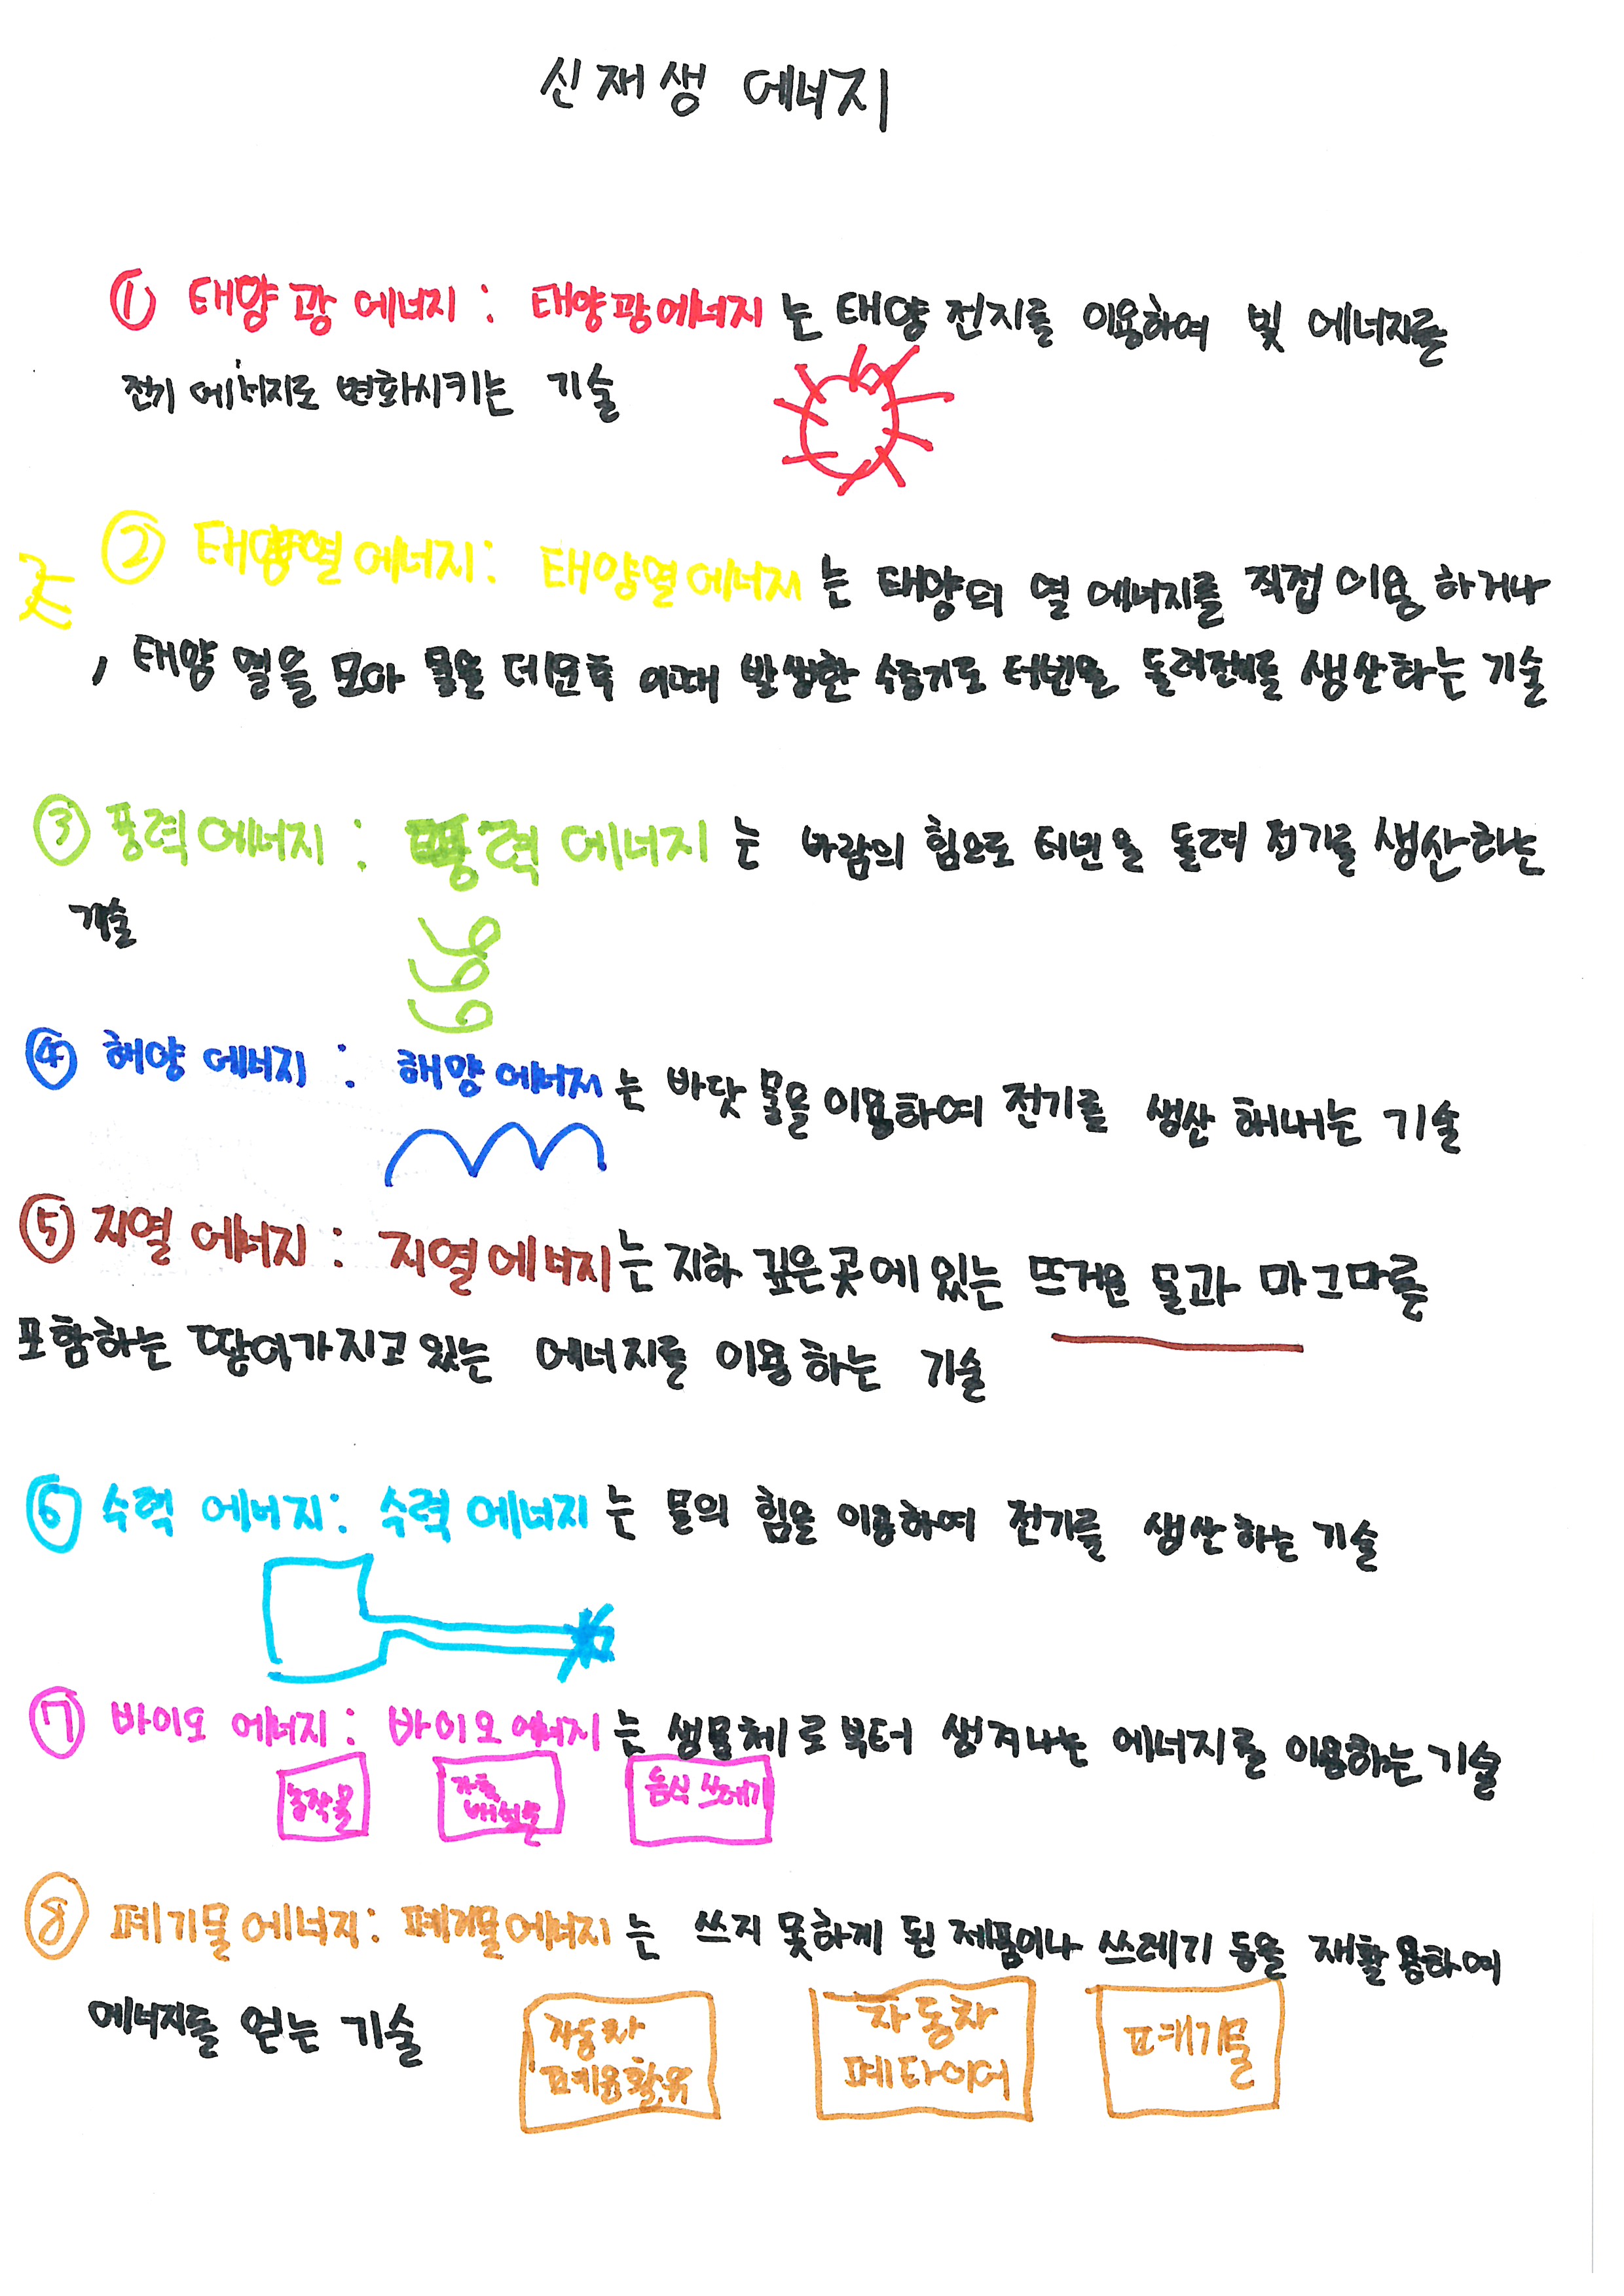 신재생 에너지
① 태양광 에너지 : 태양광에너지는 태양 전지를 이용하여 빛 에너지를
전기 에너지로 변화시키는 기술
② 태양열에너지 : 태양열에너지는 태양의 열 에너지를 직접 이용 하거나
, 태양 열을 모아 물을 데운후 이때 발생한 수증기로 터빈을 돌려 생산하는 기술
③ 풍력에너지 : 풍력 에너지는 바람의 힘으로 터빈을 돌려 전기를 생산하는
기술
④ 해양 에너지 : 해양 에너지는 바닷 물을 이용하여 전기를 생산 해내는 기술
⑤ 지열 에너지 : 지열에너지는 지하 깊은곳에 있는 뜨거운 물과 마그마를
포함하는 땅이가지고 있는 에너지를 이용하는 기술
⑥ 수력 에너지 : 수력에너지는 물의 힘을 이용하여 전기를 생산하는 기술
⑦ 바이오 에너지 : 바이오 에너지는 생물체로부터 생겨나는 에너지를 이용하는 기술
농작물
가축
배설물
음식 쓰레기
⑧ 폐기물에너지 : 폐기물에너지는 쓰지 못하게 된 제품이나 쓰레기 등을 재활용하여
에너지를 얻는 기술
자동차
폐윤활유
자동차
폐타이어
폐기물